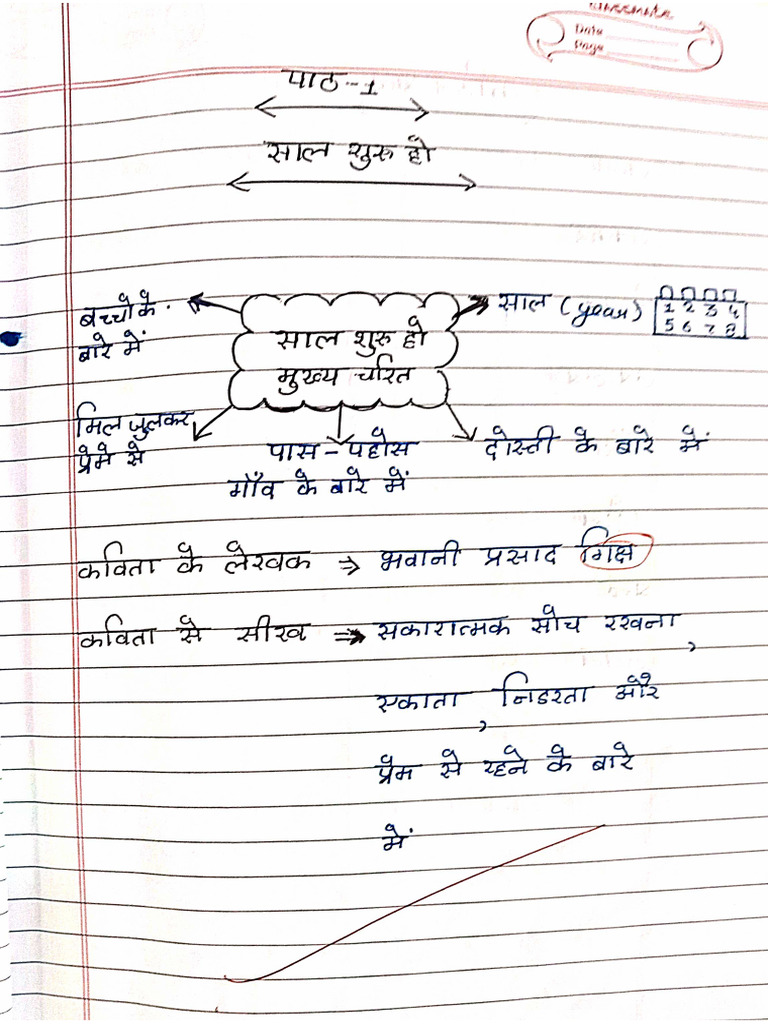 classmate
Date
Page
पाठ-1
साल शुरू हो
बच्चो के
बारे में
साल शुरू हो
मुख्य चरित
साल (year) 1 2 3 4
5 6 7 8
मिल जुलकर
प्रेमे से
पास-पहोस
गाँव के बारे में
दोस्ती के बारे में
कविता के लेखक ⇒ भवानी प्रसाद
कविता से सीख ⇒ सकारात्मक सोच रखना,
एकाता, निडरता और
प्रेम से रहने के बारे
में